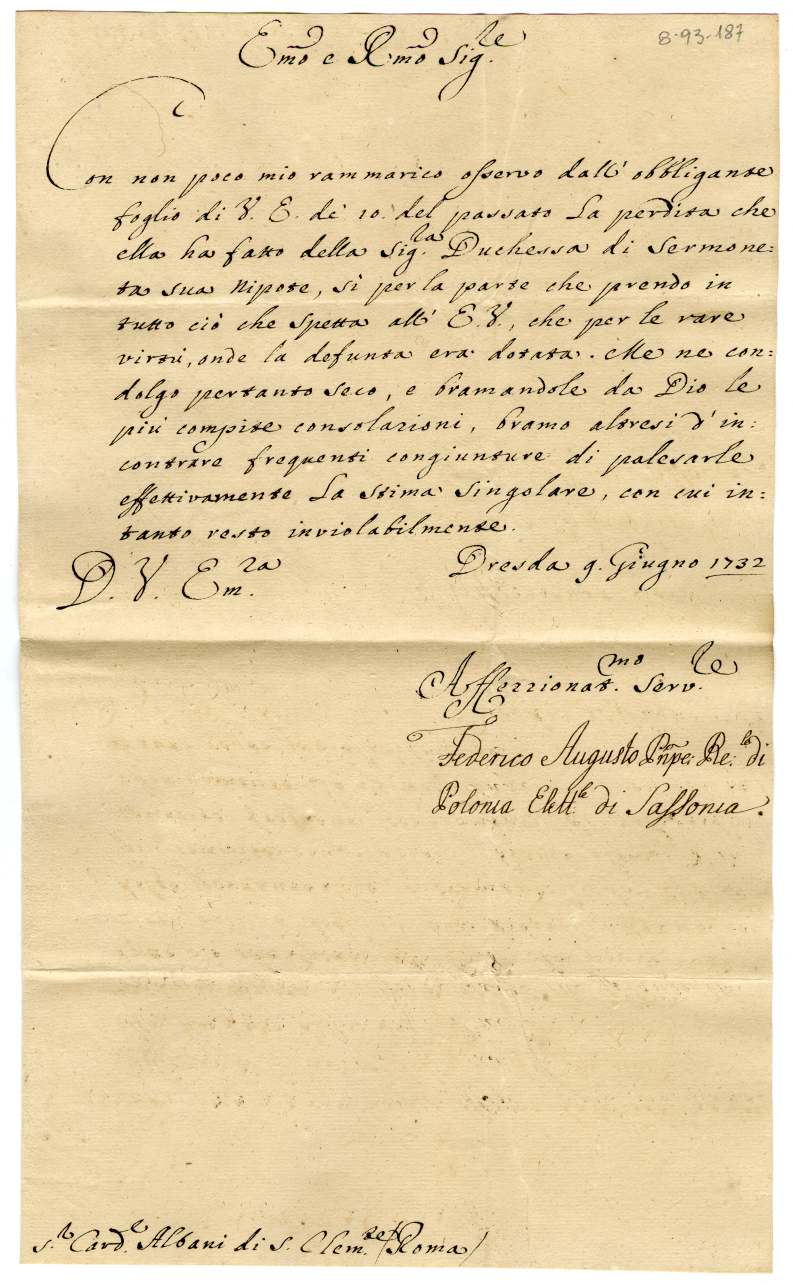 8-93-187
Em̃o e Rm̃o Sig.re
Con non poco mio rammarico osservo dall' obbligante
foglio di V. E. de' 10. del passato La perdita che
ella ha fatto della Sig.ra Duchessa di Sermone=
ta sua Nipote, sì per la parte che prendo in
tutto ciò che spetta all' E. V., che per le rare
virtù, onde la defunta era dotata. Me ne con=
dolgo pertanto seco, e bramandole da Dio le
più compite consolazioni, bramo altresi d' in=
contrare frequenti congiunture di palesarle
effettivamente La stima singolare, con cui in=
tanto resto inviolabilmente.
D. V. Em.za
Dresda 9. Giugno 1732
Affezzionat.mo Serv.re
Federico Augusto Pñpe: Re:le di
Polonia Elett.le di Sassonia.
S.r Card.le Albani di S. Clem.te /Roma/